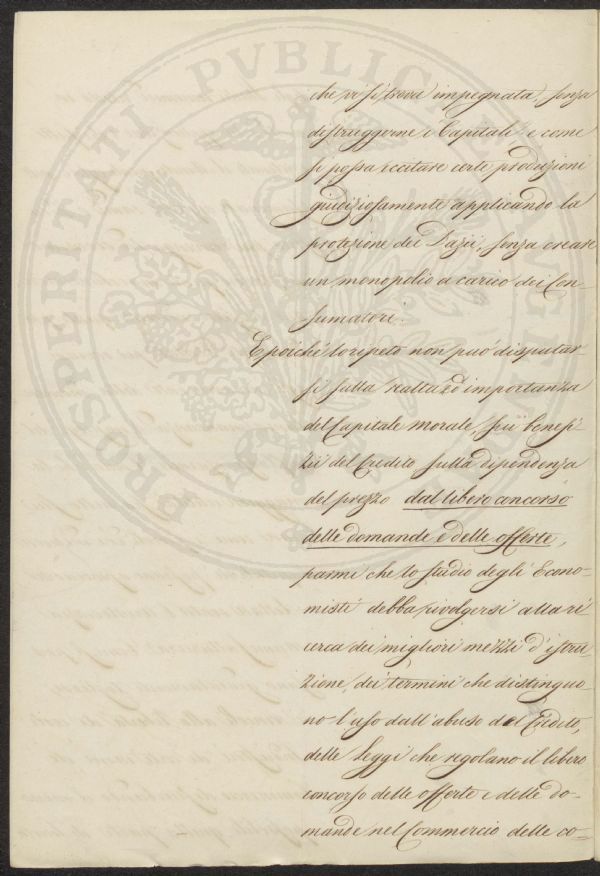 che vi si trova impegnata, senza
distruggerne i Capitali, e come
si possa eccitare certe produzioni
giudiziosamente applicando la
protezione dei Dazii, senza creare
un monopolio a carico dei Con-
sumatori.
E poiché lo ripeto non può disputar-
si sulla realtà ed importanza
del Capitale morale, sui benefi-
zii del Credito sulla dipendenza
del prezzo dal libero concorso
delle domande e delle offerte,
parmi che lo studio degli Econo-
misti debba rivolgersi alla ri
cerca dei migliori mezzi d'istru-
zione, dei termini che distinguo-
no l'uso dall'abuso del Credito,
delle Leggi che regolano il libero
concorso delle offerte e delle do-
mande nel Commercio delle co-
PROSPERITATI PVBLICAE AVGENDAE